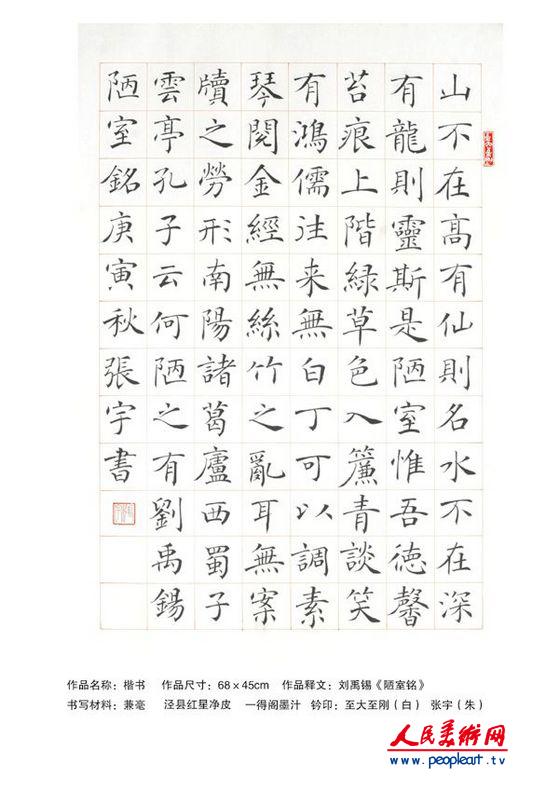 山不在高有仙則名水不在深
有龍則靈斯是陋室惟吾徳馨
苔痕上階緑草色入簾青談笑
有鴻儒往来無白丁可以調素
琴閱金經無絲竹之亂耳無案
牘之勞形南陽諸葛廬西蜀子
雲亭孔子云何陋之有劉禹錫
陋室銘庚寅秋張宇書
作品名称：楷书 作品尺寸：68×45cm 作品释文：刘禹锡《陋室铭》
书写材料：兼毫 泾县红星净皮 一得阁墨汁 钤印：至大至刚（白） 张宇（朱）
人民美术网
www.peopleart.tv